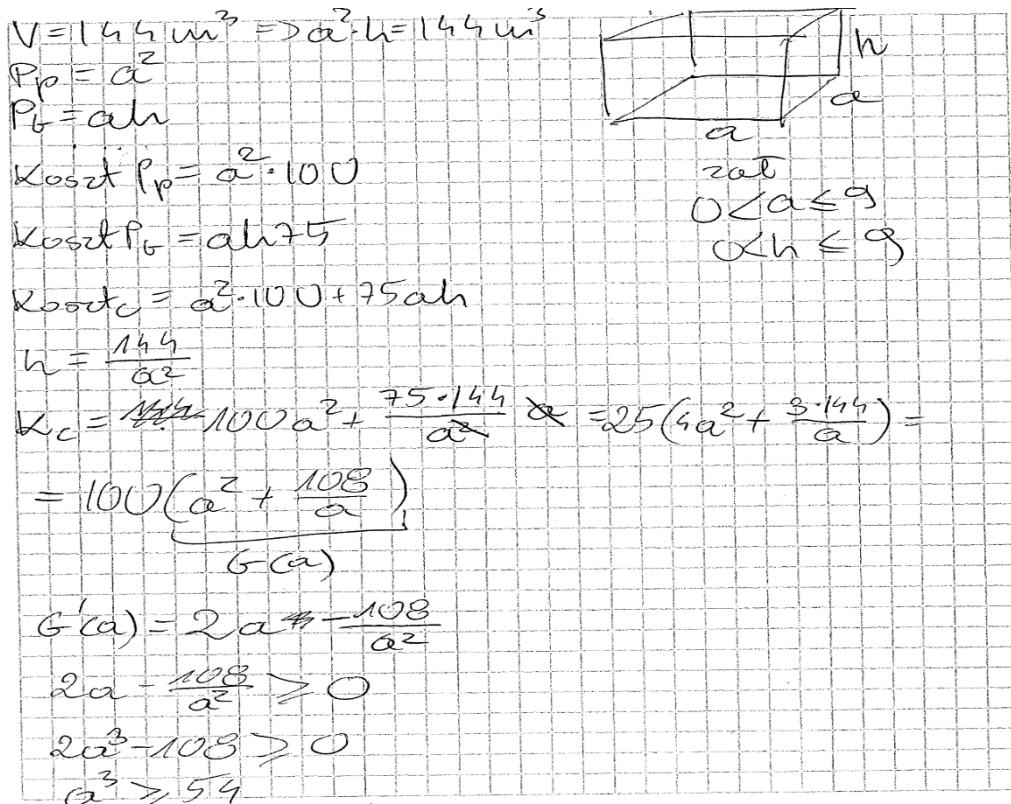 V = 144 m³ => a²·h = 144 m³
Pp = a²
Pb = ah
Koszt Pp = a²·100
Koszt Pb = ah75
Kosztc = a²·100 + 75ah
h = 144/a²
Kc = 100a² + 75·144/a² a = 25(4a² + 3·144/a) =
= 100(a² + 108/a)
G(a)
G'(a) = 2a - 108/a²
2a - 108/a² ≥ 0
2a³ - 108 ≥ 0
a³ ≥ 54
h
a
a
zał
0 < a ≤ 9
0 < h ≤ 9